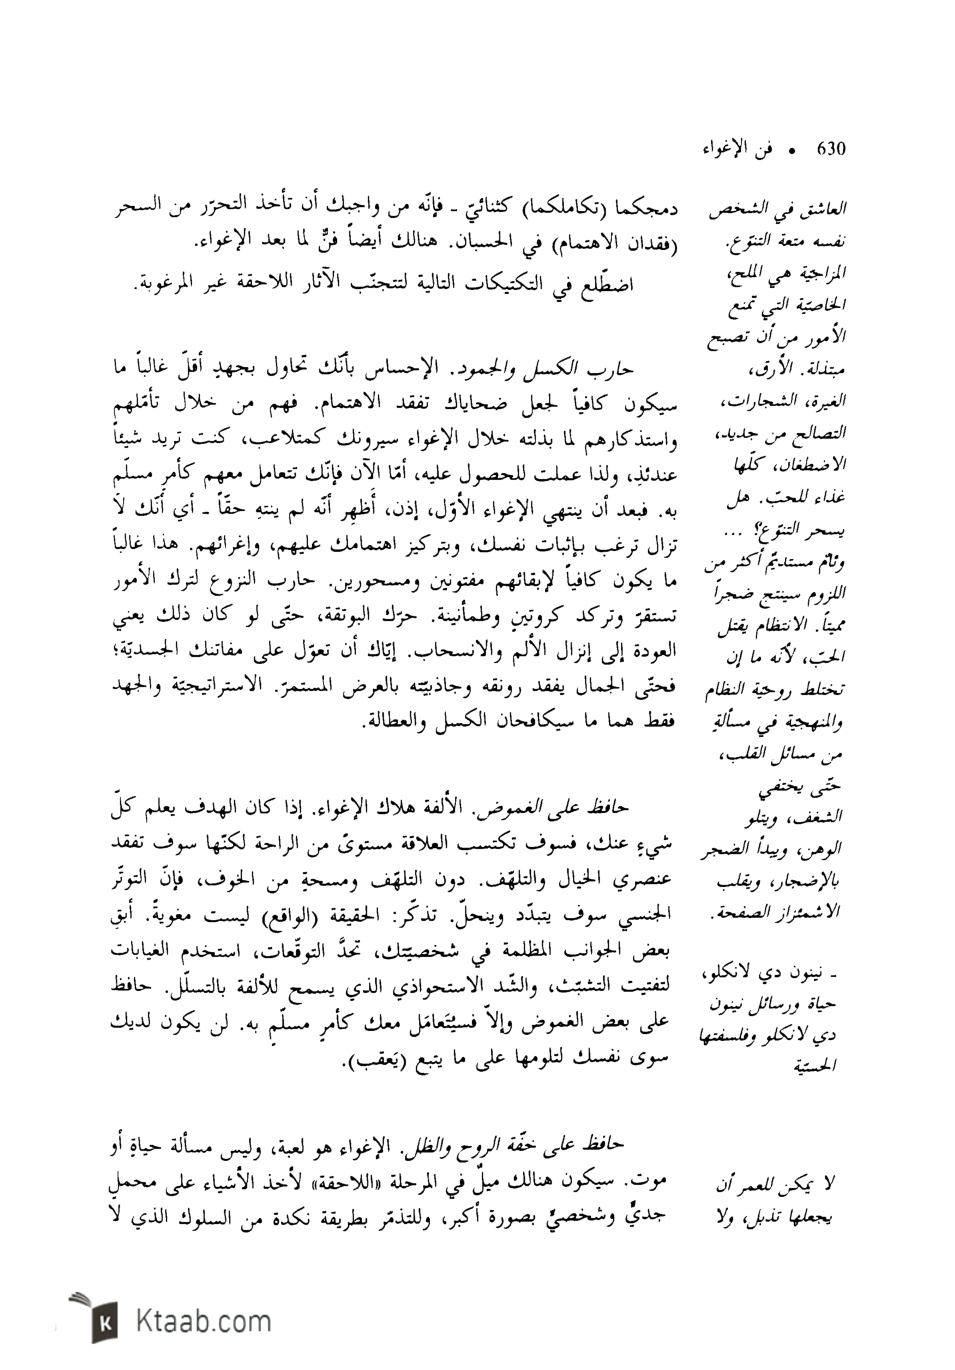 630 • فن الإغواء
دمجكما (تكاملكما) كثنائيّ ـ فإنّه من واجبك أن تأخذ التحرّر من السحر
(فقدان الاهتمام) في الحسبان. هنالك أيضاً فنٌّ لما بعد الإغواء.
اضطّلع في التكتيكات التالية لتتجنّب الآثار اللاحقة غير المرغوبة.
حارب الكسل والجمود. الإحساس بأنّك تحاول بجهدٍ أقلّ غالباً ما
سيكون كافياً لجعل ضحاياك تفقد الاهتمام. فهم من خلال تأمّلهم
واستذكارهم لما بذلته خلال الإغواء سيرونك كمتلاعب، كنت تريد شيئاً
عندئذٍ، ولذا عملت للحصول عليه، أمّا الآن فإنّك تتعامل معهم كأمرٍ مسلّم
به. فبعد أن ينتهي الإغواء الأوّل، إذن، أَظهِر أنّه لم ينتهِ حقّاً ـ أي أنّك لاَ
تزال ترغب بإثبات نفسك، وبتركيز اهتمامك عليهم، وإغرائهم. هذا غالباً
ما يكون كافياً لإبقائهم مفتونين ومسحورين. حارب النزوع لترك الأمور
تستقرّ وتركد كروتينٍ وطمأنينة. حرّك البوتقة، حتّى لو كان ذلك يعني
العودة إلى إنزال الألم والانسحاب. إيّاك أن تعوّل على مفاتنك الجسديّة؛
فحتّى الجمال يفقد رونقه وجاذبيّته بالعرض المستمرّ. الاستراتيجيّة والجهد
فقط هما ما سيكافحان الكسل والعطالة.
حافظ على الغموض. الألفة هلاك الإغواء. إذا كان الهدف يعلم كلّ
شيءٍ عنك، فسوف تكتسب العلاقة مستوىً من الراحة لكنّها سوف تفقد
عنصري الخيال والتلهّف. دون التلهّف ومسحةٍ من الخوف، فإنّ التوتّر
الجنسي سوف يتبدّد وينحلّ. تذكّر: الحقيقة (الواقع) ليست مغويةً. أبقِ
بعض الجوانب المظلمة في شخصيّتك، تحدَّ التوقّعات، استخدم الغيابات
لتفتيت التشبّث، والشّد الاستحواذي الذي يسمح للألفة بالتسلّل. حافظ
على بعض الغموض وإلاّ فسيُتَعامَل معك كأمرٍ مسلّمٍ به. لن يكون لديك
سوى نفسك لتلومها على ما يتبع (يَعقب).
حافظ على خفّة الروح والظل. الإغواء هو لعبة، وليس مسألة حياةٍ أو
موت. سيكون هنالك ميلٌ في المرحلة «اللاحقة» لأخذ الأشياء على محملٍ
جديٍّ وشخصيٍّ بصورة أكبر، وللتذمّر بطريقة نكدة من السلوك الذي لا
العاشق في الشخص
نفسه متعة التنوّع.
المزاجيّة هي الملح،
الخاصّيّة التي تمنع
الأمور من أن تصبح
مبتذلة. الأرق،
الغيرة، الشجارات،
التصالح من جديد،
الاضطغان، كلّها
غذاء للحبّ. هل
يسحر التنوّع؟ ...
وئامٌ مستديمٌ أكثر من
اللزوم سينتج ضجراً
مميتاً. الانتظام يقتل
الحبّ، لأنّه ما إن
تختلط روحية النظام
والمنهجيّة في مسألةٍ
من مسائل القلب،
حتّى يختفي
الشغف، ويتلو
الوهن، ويبدأ الضجر
بالإضجار، ويقلب
الاشمئزاز الصفحة.
ـ نينون دي لانكلو،
حياة ورسائل نينون
دي لانكلو وفلسفتها
الحسيّة
لا يمكن للعمر أن
يجعلها تذبل، ولا
Ktaab.com